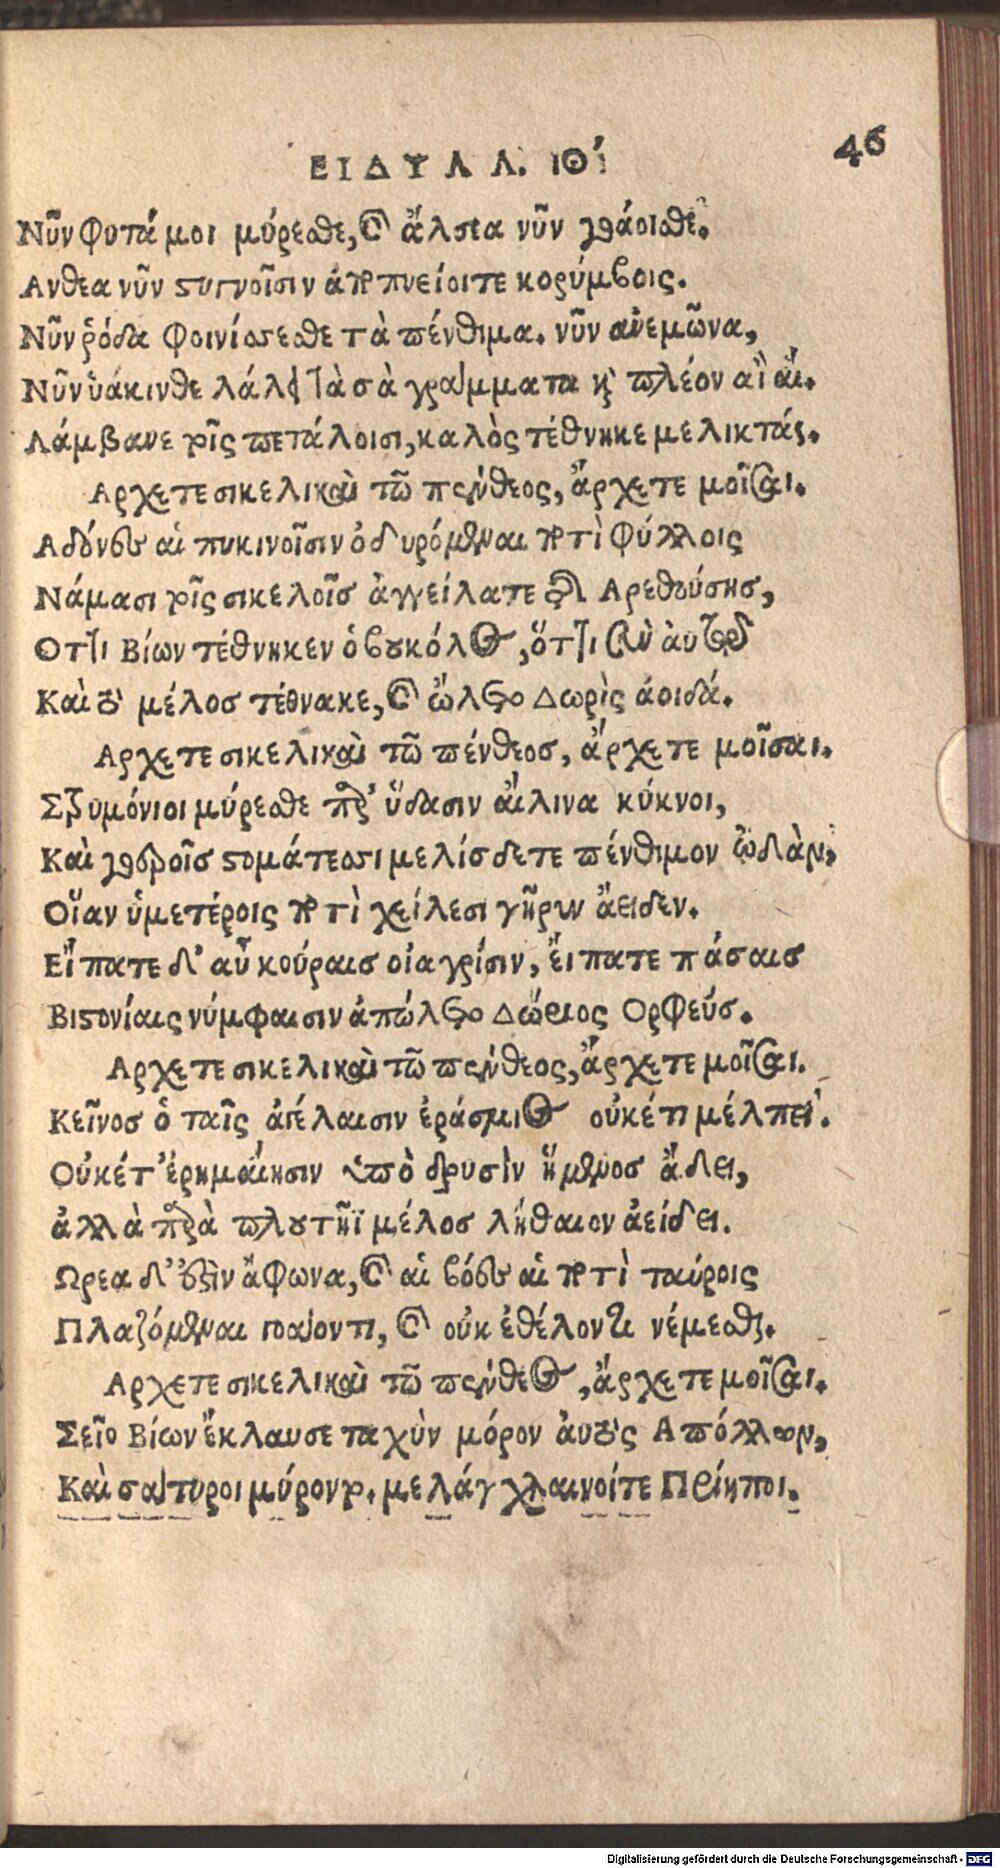 ΕΙΔΥΛΛ. ΙΘ΄
46
Νῦν φυτά μοι μύρεσθε, καὶ ἄλσεα νῦν γοάοισθε.
Ανθεα νῦν στυγνοῖσιν ἀποπνείοιτε κορύμβοις.
Νῦν ῥόδα φοινίσσεσθε τὰ πένθιμα. νῦν ἀνεμῶνα,
Νῦν ὑάκινθε λάλει τὰ σὰ γράμματα καὶ πλέον αἲ αἴ.
Λάμβανε τοῖς πετάλοισι, καλὸς τέθνηκε μελικτάς.
Αρχετε σικελικαὶ τῶ πένθεος, ἄρχετε μοῖσαι.
Αδόνες αἱ πυκινοῖσιν ὀδυρόμεναι ποτὶ φύλλοις
Νάμασι τοῖς σικελοῖς ἀγγείλατε τᾶς Αρεθούσης,
Οττι Βίων τέθνηκεν ὁ βουκόλος, ὅττι σὺν αὐτῷ
Καὶ τὸ μέλος τέθνακε, καὶ ὤλετο Δωρὶς ἀοιδά.
Αρχετε σικελικαὶ τῶ πένθεος, ἄρχετε μοῖσαι.
Στρυμόνιοι μύρεσθε παρ' ὕδασιν αἴλινα κύκνοι,
Καὶ γοεροῖς στομάτεσσι μελίσδετε πένθιμον ᾠδὰν,
Οἵαν ὑμετέροις ποτὶ χείλεσι γῆρυν ἄειδεν.
Εἴπατε δ' αὖ κούραις οἰαγρίσιν, εἴπατε πάσαις
Βιστονίαις νύμφαισιν ἀπώλετο Δώριος Ορφεύς.
Αρχετε σικελικαὶ τῶ πένθεος, ἄρχετε μοῖσαι.
Κεῖνος ὁ ταῖς ἀγέλαισιν ἐράσμιος οὐκέτι μέλπει.
Οὐκέτ' ἐρημαίησιν ὑπὸ δρυσὶν ἥμενος ᾄδει,
ἀλλὰ παρὰ πλουτῆϊ μέλος λήθαιον ἀείδει.
Ωρεα δ' ἐστὶν ἄφωνα, καὶ αἱ βόες αἱ ποτὶ ταύροις
Πλαζόμεναι γοάοντι, καὶ οὐκ ἐθέλοντι νέμεσθαι.
Αρχετε σικελικαὶ τῶ πένθεος, ἄρχετε μοῖσαι.
Σεῖο Βίων ἔκλαυσε ταχὺν μόρον αὐτὸς Απόλλων,
Καὶ σάτυροι μύροντο. μελάγχλαινοίτε Πρίηποι.
Digitalisierung gefördert durch die Deutsche Forschungsgemeinschaft - DFG